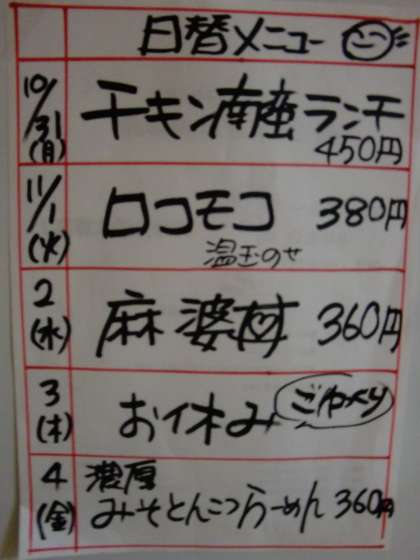 日替メニュー
10/31(月) チキン南蛮ランチ
450円
11/1(火) ロコモコ 380円
温玉のせ
2(水) 麻婆丼 360円
3(木) お休み ごゆっくり
4(金) 濃厚
みそとんこつらーめん 360円